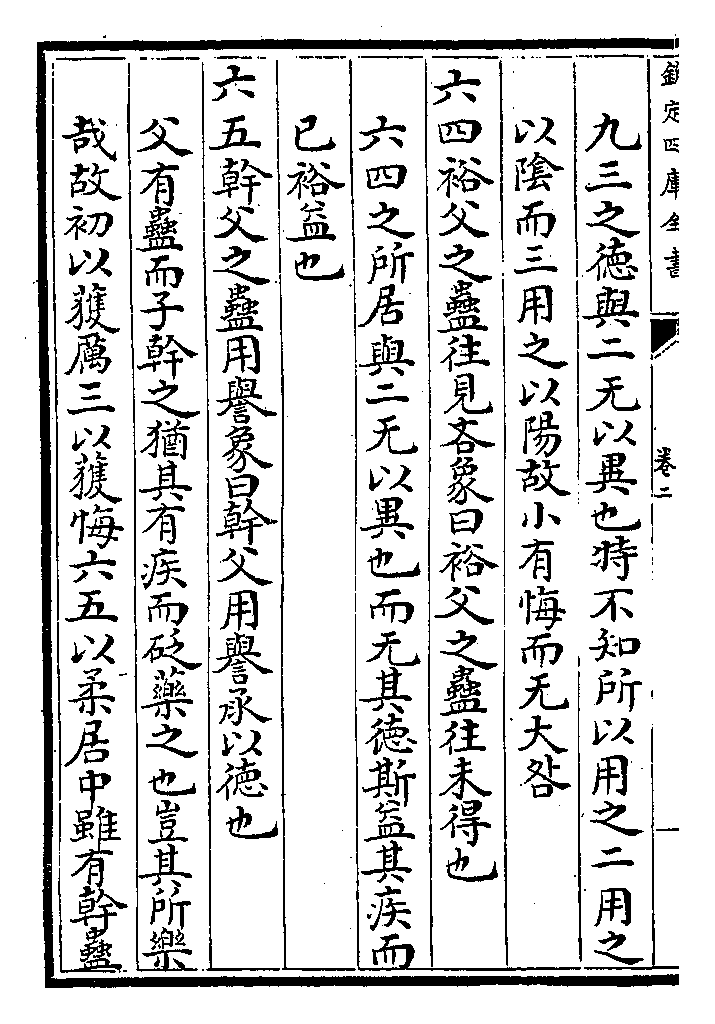 欽定四庫全書
卷二
九三之德與二无以異也特不知所以用之二用之
以陰而三用之以陽故小有悔而无大咎
六四裕父之蠱往見吝象曰裕父之蠱往未得也
六四之所居與二无以異也而无其德斯益其疾而
已裕益也
六五幹父之蠱用譽象曰幹父用譽承以德也
父有蠱而子幹之猶其有疾而砭藥之也豈其所樂
哉故初以獲厲三以獲悔六五以柔居中雖有幹蠱